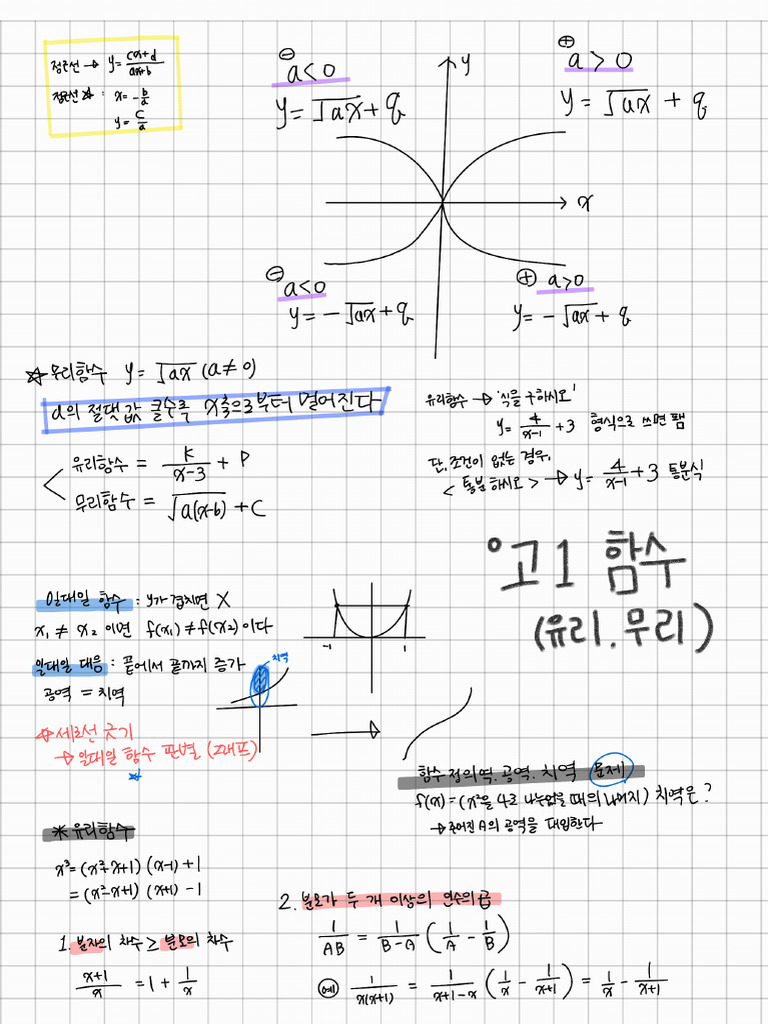 점근선 → y = \frac{cx+d}{ax+b}
점근선 : x = -\frac{b}{a}
y = \frac{c}{a}
⊖ a<0
y = √ax + q
⊕ a > 0
y = √ax + q
y
x
⊖ a<0
y = -√ax + q
⊕ a>0
y = -√ax + q
☆ 무리함수 y = √ax (a≠0)
a의 절댓값 클수록 x축으로부터 멀어진다
유리함수 = \frac{k}{x-3} + P
무리함수 = √a(x-b) + C
유리함수 → '식을 구하시오'
y = \frac{4}{x-1} + 3 형식으로 쓰면 됌
단, 조건이 없는 경우,
< 통분 하시오 > → y = \frac{4}{x-1} + 3 통분식
°고1 함수
(유리.무리)
일대일 함수 : y가 겹치면 X
x₁ ≠ x₂ 이면 f(x₁) ≠ f(x₂) 이다
일대일 대응 : 끝에서 끝까지 증가
공역 = 치역
☆ 세로선 긋기
→ 일대일 함수 판별 (그래프)
-1 1
치역
함수 정의역. 공역. 치역 문제
f(x) = (x²을 4로 나누었을 때의 나머지) 치역은?
→ 주어진 A의 공역을 대입한다
* 유리함수
x³ = (x²+x+1) (x-1) + 1
= (x²-x+1) (x+1) - 1
1. 분자의 차수 ≥ 분모의 차수
\frac{x+1}{x} = 1 + \frac{1}{x}
2. 분모가 두 개 이상의 인수의 곱
\frac{1}{AB} = \frac{1}{B-A} (\frac{1}{A} - \frac{1}{B})
예 \frac{1}{x(x+1)} = \frac{1}{x+1-x} (\frac{1}{x} - \frac{1}{x+1}) = \frac{1}{x} - \frac{1}{x+1}